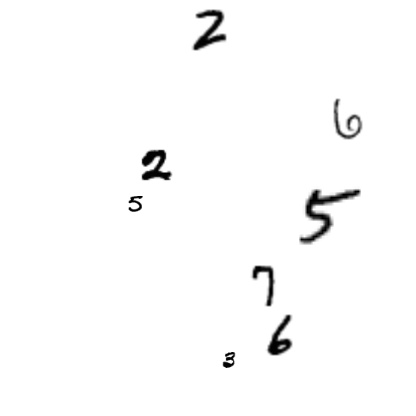 2
6
2
5
5
7
6
3